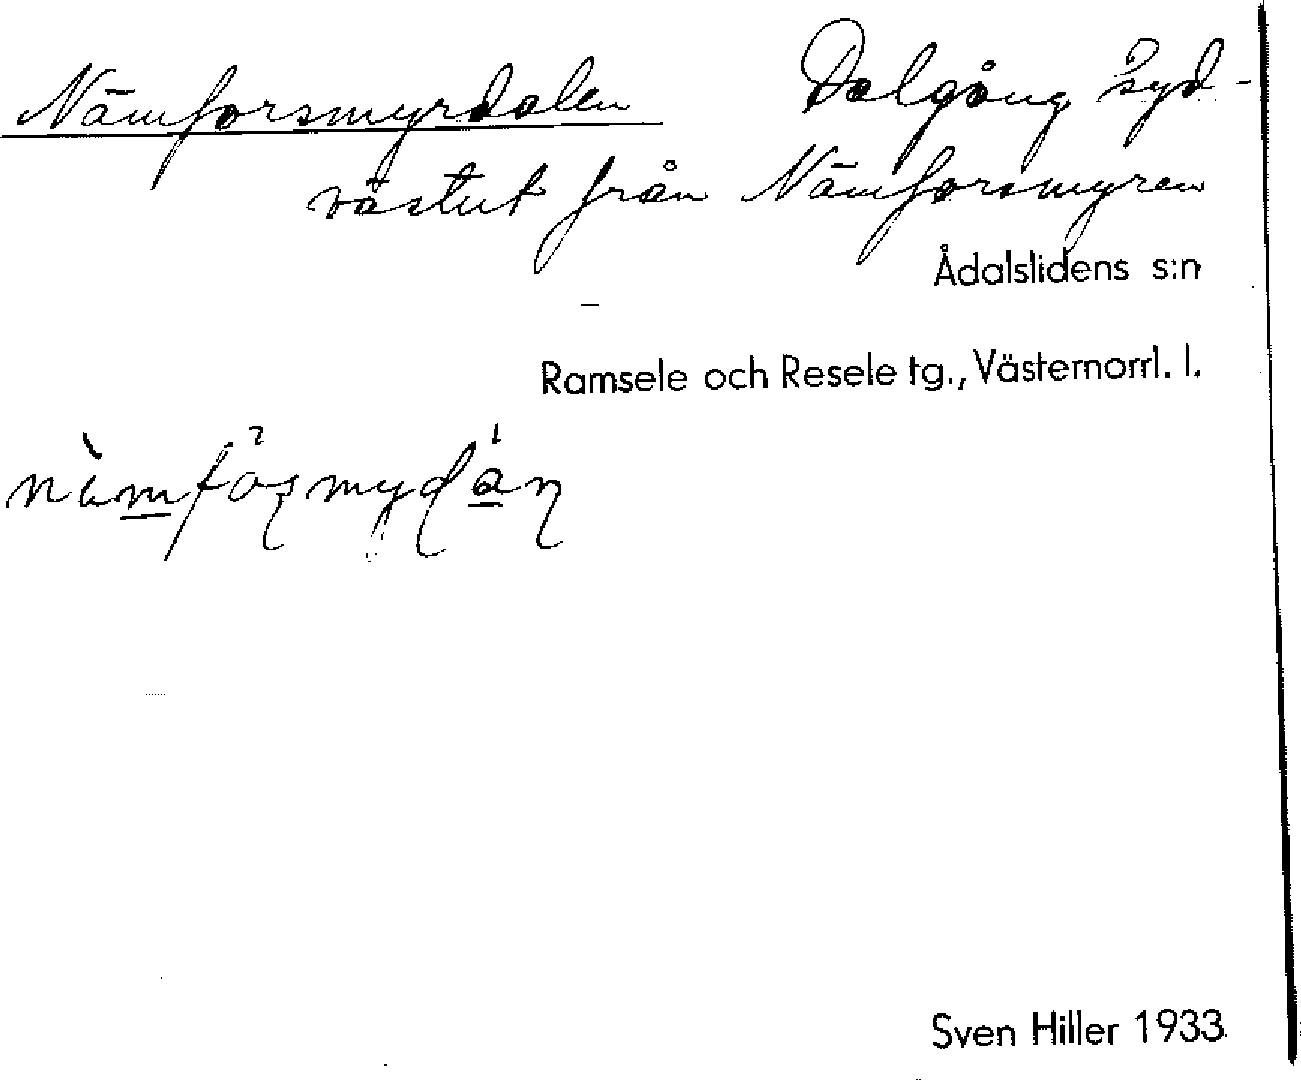 Nämforsmyrdalen Dalgång syd-
västut från Nämforsmyren
Ådalslidens s:n
Ramsele och Resele tg., Västernorrl. l.
Sven Hiller 1933